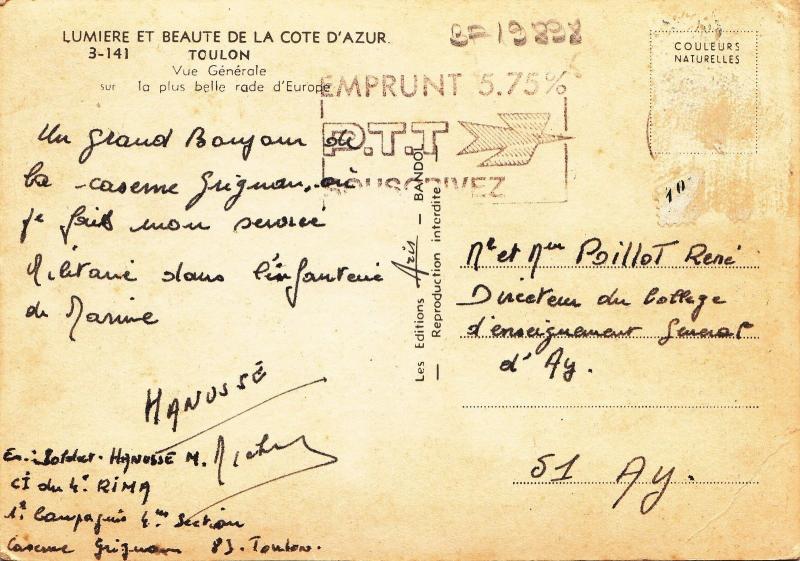 LUMIERE ET BEAUTE DE LA COTE D'AZUR
3-141 TOULON
Vue Générale
sur la plus belle rade d'Europe
EMPRUNT 5.75%
P.T.T
SOUSCRIVEZ
COULEURS
NATURELLES
Un grand Bonjour de
la caserne Grignan, où
je fais mon service
Militaire dans l'infanterie
de Marine
HANUSSE
En.: Soldat HANUSSE M. Michel
CI du 4e RIMA
1e Compagnie 4eme Section
Caserne Grignan 83. Toulon.
Les Editions Aris - BANDOL
Reproduction interdite
Mr et Mme POILLOT René
Directeur du College
d'enseignement General
d'Ay.
51 Ay.